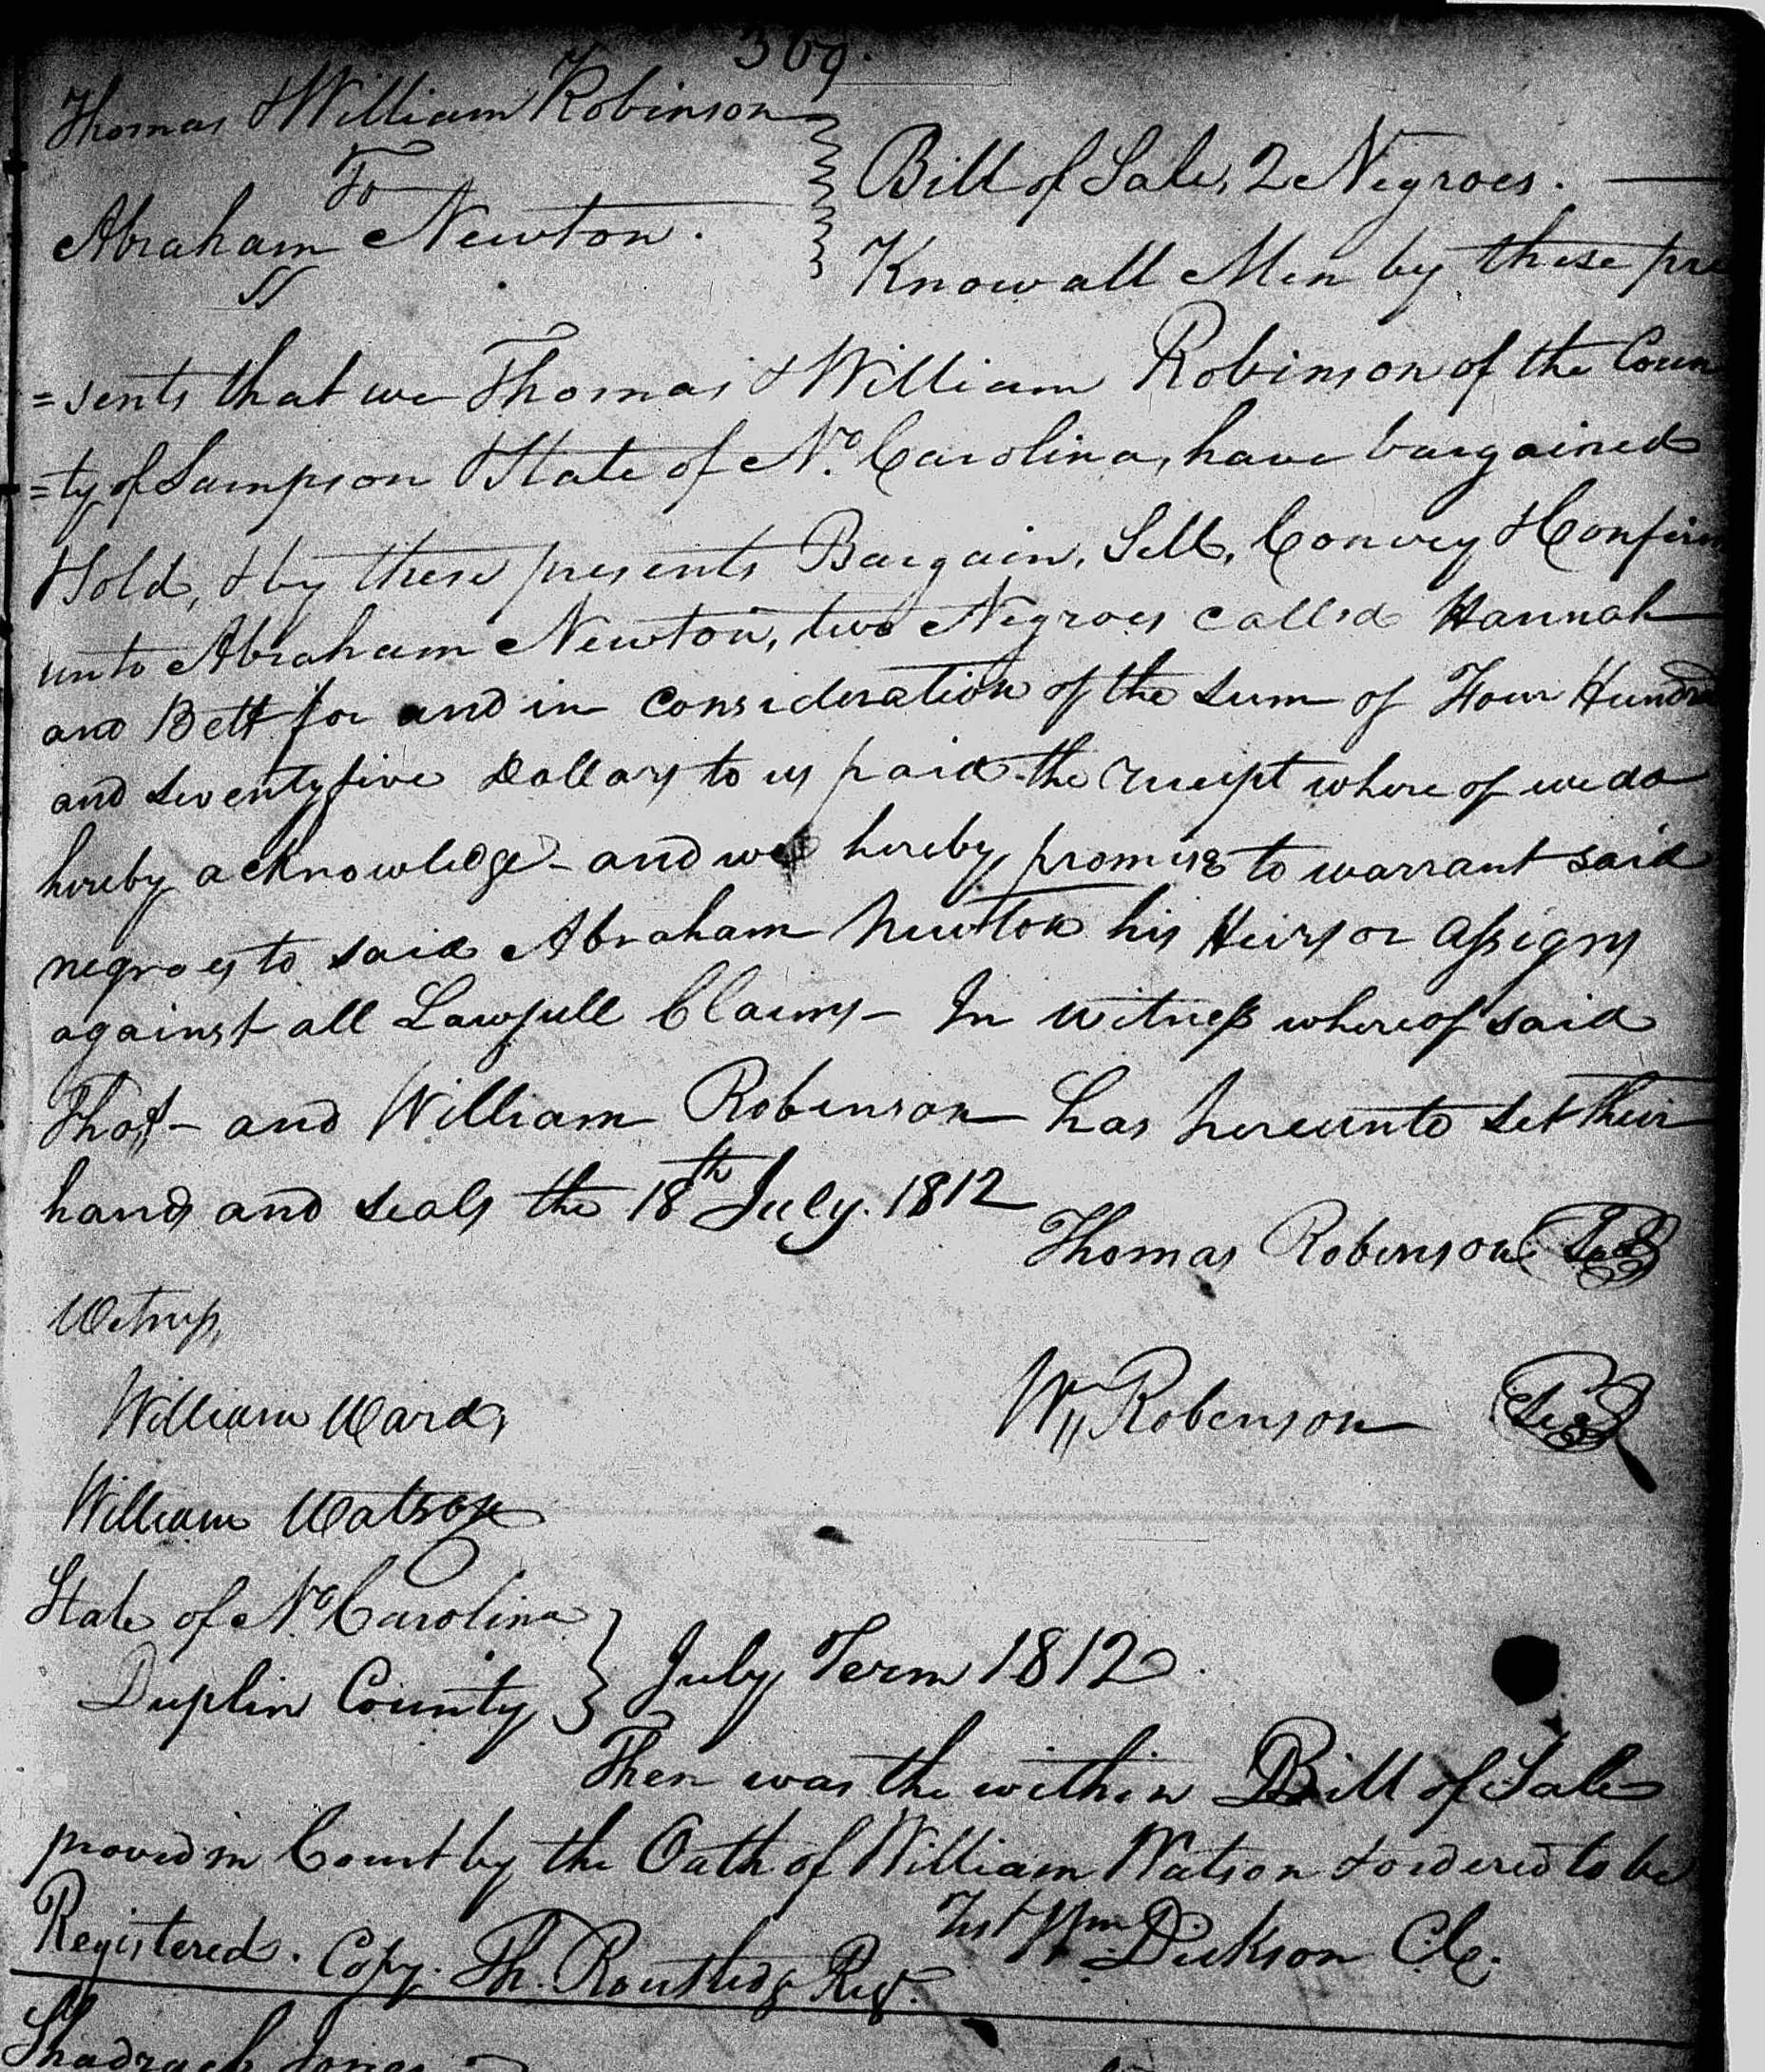 369.
Thomas & William Robinson
To
Abraham Newton.
Bill of Sale, 2 Negroes.
Know all Men by these pre
=sents that we Thomas & William Robinson of the Coun
=ty of Sampson & State of No. Carolina, have bargained
& Sold, & by these presents Bargain, Sell, Convey & Confirm
unto Abraham Newton, two Negroes called Hannah
and Bett for and in consideration of the Sum of Four Hundred
and seventyfive Dollars to us paid the receipt where of we do
hereby acknowledge - and we hereby promise to warrant said
negroes to said Abraham Newton his Heirs or assigns
against all Lawfull Claims - In witness whereof said
Thos - and William Robinson has hereunto set their
hands and seals the 18th July. 1812
Thomas Robinson Seal
Witness,
William Ward,
Wm Robenson Seal
William Watson
State of No Carolina
Duplin County
July Term 1812.
Then was the within Bill of Sale
proved in Court by the Oath of William Watson & ordered to be
Registered. Copy. Th. Routledge Regr.
Test Wm Dickson Clk.
Shadrach Jones